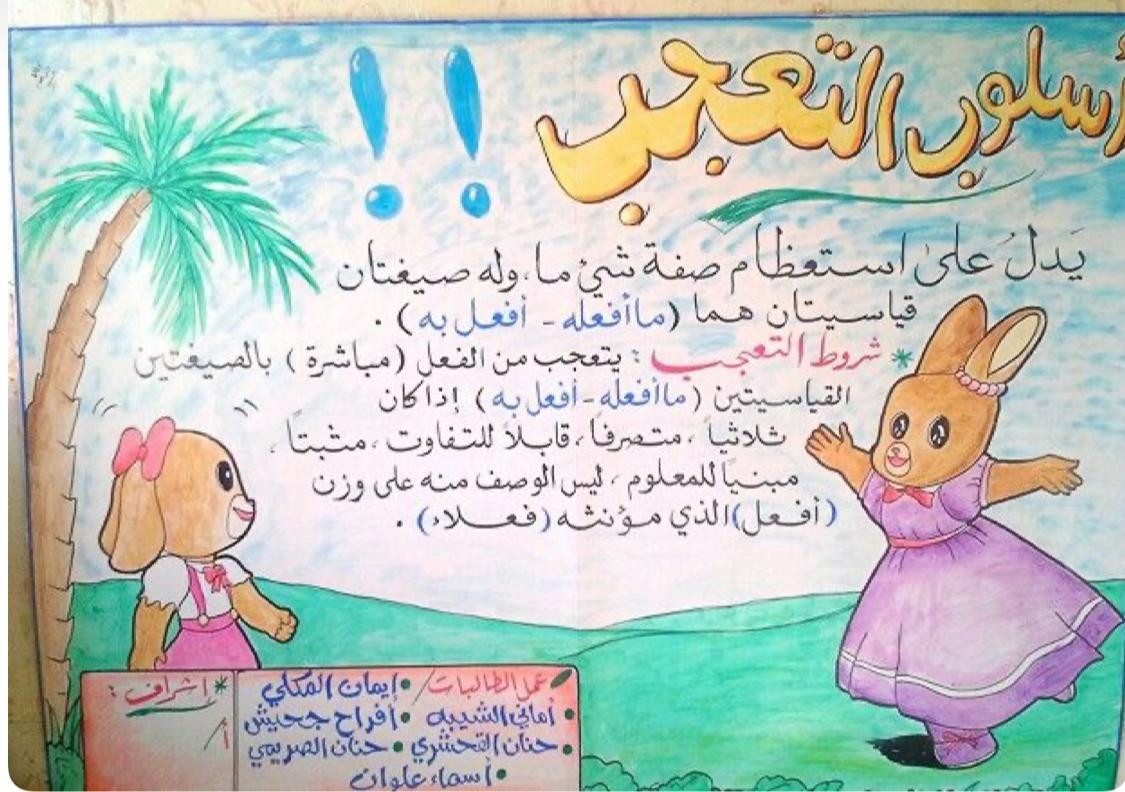 أسلوب التعجب !!
يَدلُ على استعظام صفة شيءٍ ما، وله صيغتان
قياسيتان هما (ما أفعله - أفعل به) .
* شروط التعجب : يتعجب من الفعل (مباشرة) بالصيغتين
القياسيتين (ما أفعله - أفعل به) إذا كان
ثلاثياً ، متصرفاً ، قابلاً للتفاوت ، مثبتاً ،
مبنياً للمعلوم ، ليس الوصف منه على وزن
(أفعل) الذي مؤنثه (فعلاء) .
عمل الطالبات / • إيمان المكلي
• أماني الشيبه • أفراح جحيش
• حنان القحشري • حنان الصريمي
• أسماء علوان
* إشراف :
أ /